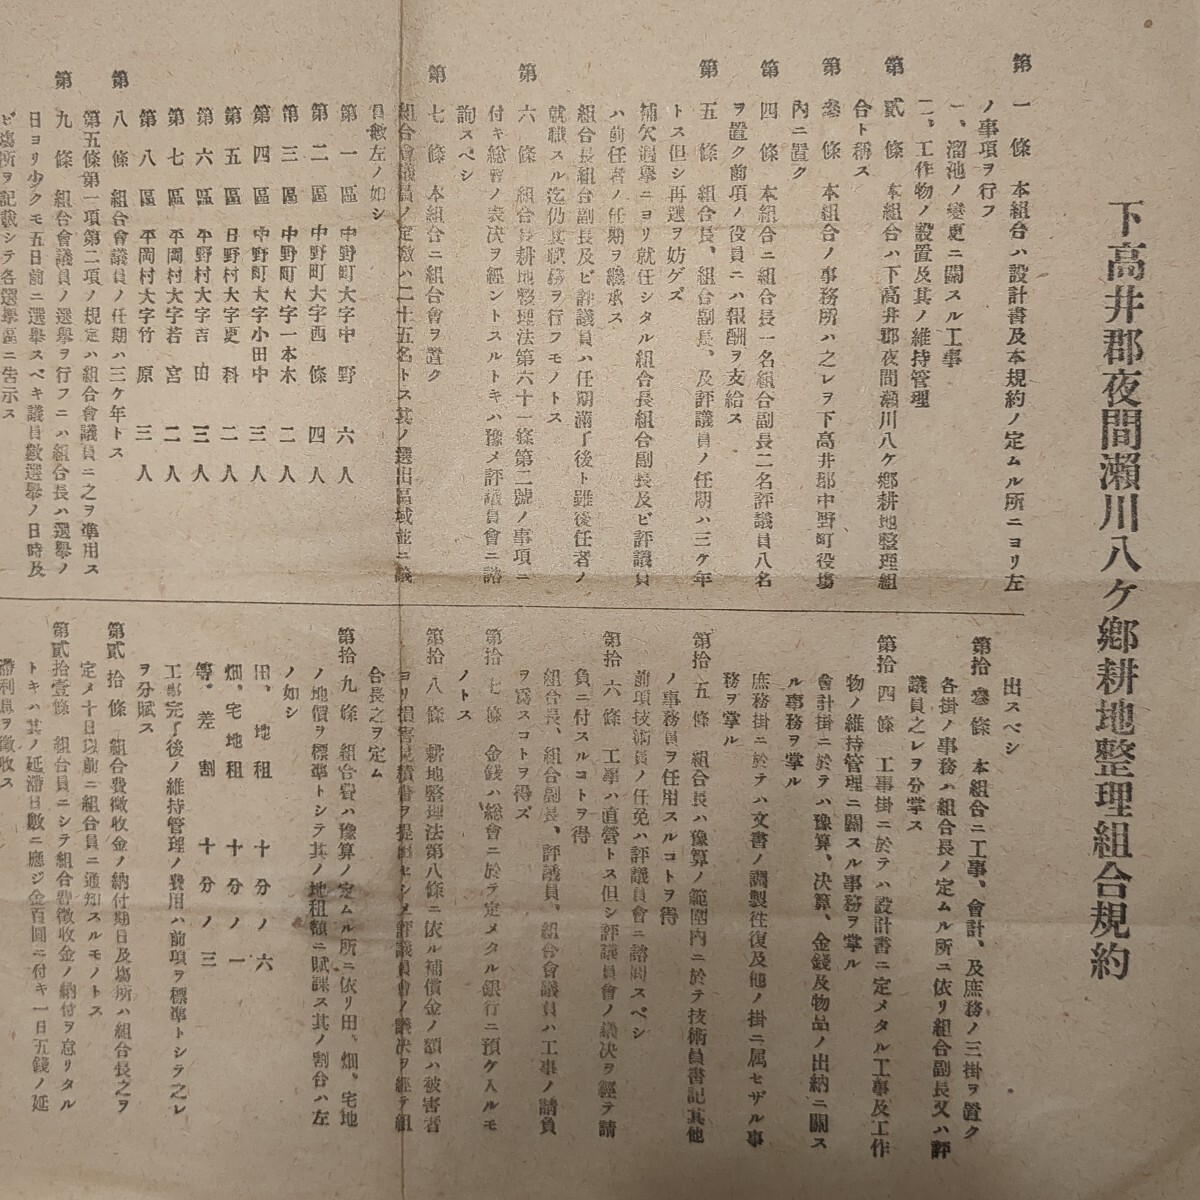 下高井郡夜間瀨川八ケ鄕耕地整理組合規約
第一條 本組合ハ設計書及本規約ノ定ムル所ニヨリ左
ノ事項ヲ行フ
一、溜池ノ變更ニ關スル工事
二、工作物ノ設置及其ノ維持管理
第貳條 本組合ハ下高井郡夜間瀨川八ケ鄕耕地整理組
合ト稱ス
第參條 本組合ノ事務所ハ之レヲ下高井郡中野町役塲
內ニ置ク
第四條 本組合ニ組合長一名組合副長二名評議員八名
ヲ置ク前項ノ役員ニハ報酬ヲ支給ス
第五條 組合長、組合副長、及評議員ノ任期ハ三ケ年
トス但シ再選ヲ妨ゲズ
補欠選擧ニヨリ就任シタル組合長組合副長及ビ評議員
ハ前任者ノ任期ヲ繼承ス
組合長組合副長及ビ評議員ハ任期滿了後ト雖後任者ノ
就職スル迄仍其職務ヲ行フモノトス
第六條 組合長耕地整理法第六十一條第二號ノ事項ニ
付キ總會ノ表決ヲ經ントスルトキハ豫メ評議員會ニ諮
詢スベシ
第七條 本組合ニ組合會ヲ置ク
組合會議員ノ定數ハ二十五名トス其ノ選出區域並ニ議
員數左ノ如シ
第一區 中野町大字中野 六人
第二區 中野町大字西條 四人
第三區 中野町大字一本木 二人
第四區 中野町大字小田中 三人
第五區 日野村大字更科 二人
第六區 平野村大字吉田 三人
第七區 平岡村大字若宮 二人
第八區 平岡村大字竹原 三人
第八條 組合會議員ノ任期ハ三ケ年トス
第五條第一項第二項ノ規定ハ組合會議員ニ之ヲ準用ス
第九條 組合會議員ノ選擧ヲ行フニハ組合長ハ選擧ノ
日ヨリ少クモ五日前ニ選擧スベキ議員數選擧ノ日時及
ビ塲所ヲ記載シテ各選擧區ニ告示ス
出スベシ
第拾參條 本組合ニ工事、會計、及庶務ノ三掛ヲ置ク
各掛ノ事務ハ組合長ノ定ムル所ニ依リ組合副長又ハ評
議員之レヲ分掌ス
第拾四條 工事掛ニ於テハ設計書ニ定メタル工事及工作
物ノ維持管理ニ關スル事務ヲ掌ル
會計掛ニ於テハ豫算、決算、金錢及物品ノ出納ニ關ス
ル事務ヲ掌ル
庶務掛ニ於テハ文書ノ調製往復及他ノ掛ニ属セザル事
務ヲ掌ル
第拾五條 組合長ハ豫算ノ範圍內ニ於テ技術員書記其他
ノ事務員ヲ任用スルコトヲ得
前項技術員ノ任免ハ評議員會ニ諮問スベシ
第拾六條 工事ハ直營トス但シ評議員會ノ議決ヲ經テ請
負ニ付スルコトヲ得
組合長、組合副長、評議員、組合會議員ハ工事ノ請負
ヲ爲スコトヲ得ズ
第拾七條 金錢ハ總會ニ於テ定メタル銀行ニ預ケ入ルモ
ノトス
第拾八條 耕地整理法第八條ニ依ル補償金ノ額ハ被害者
ヨリ損害見積書ヲ提出セシメ評議員會ノ議決ヲ經テ組
合長之ヲ定ム
第拾九條 組合費ハ豫算ノ定ムル所ニ依リ田、畑、宅地
ノ地價ヲ標準トシテ其ノ地租額ニ賦課ス其ノ割合ハ左
ノ如シ
田、地租 十分ノ六
畑、宅地租 十分ノ一
等差割 十分ノ三
工事完了後ノ維持管理ノ費用ハ前項ヲ標準トシテ之レ
ヲ分賦ス
第貳拾條 組合費徵收金ノ納付期日及塲所ハ組合長之ヲ
定メ十日以前ニ組合員ニ通知スルモノトス
第貳拾壹條 組合員ニシテ組合費徵收金ノ納付ヲ怠リタル
トキハ其ノ延滯日數ニ應ジ金百圓ニ付キ一日五錢ノ延
滯利息ヲ徵收ス